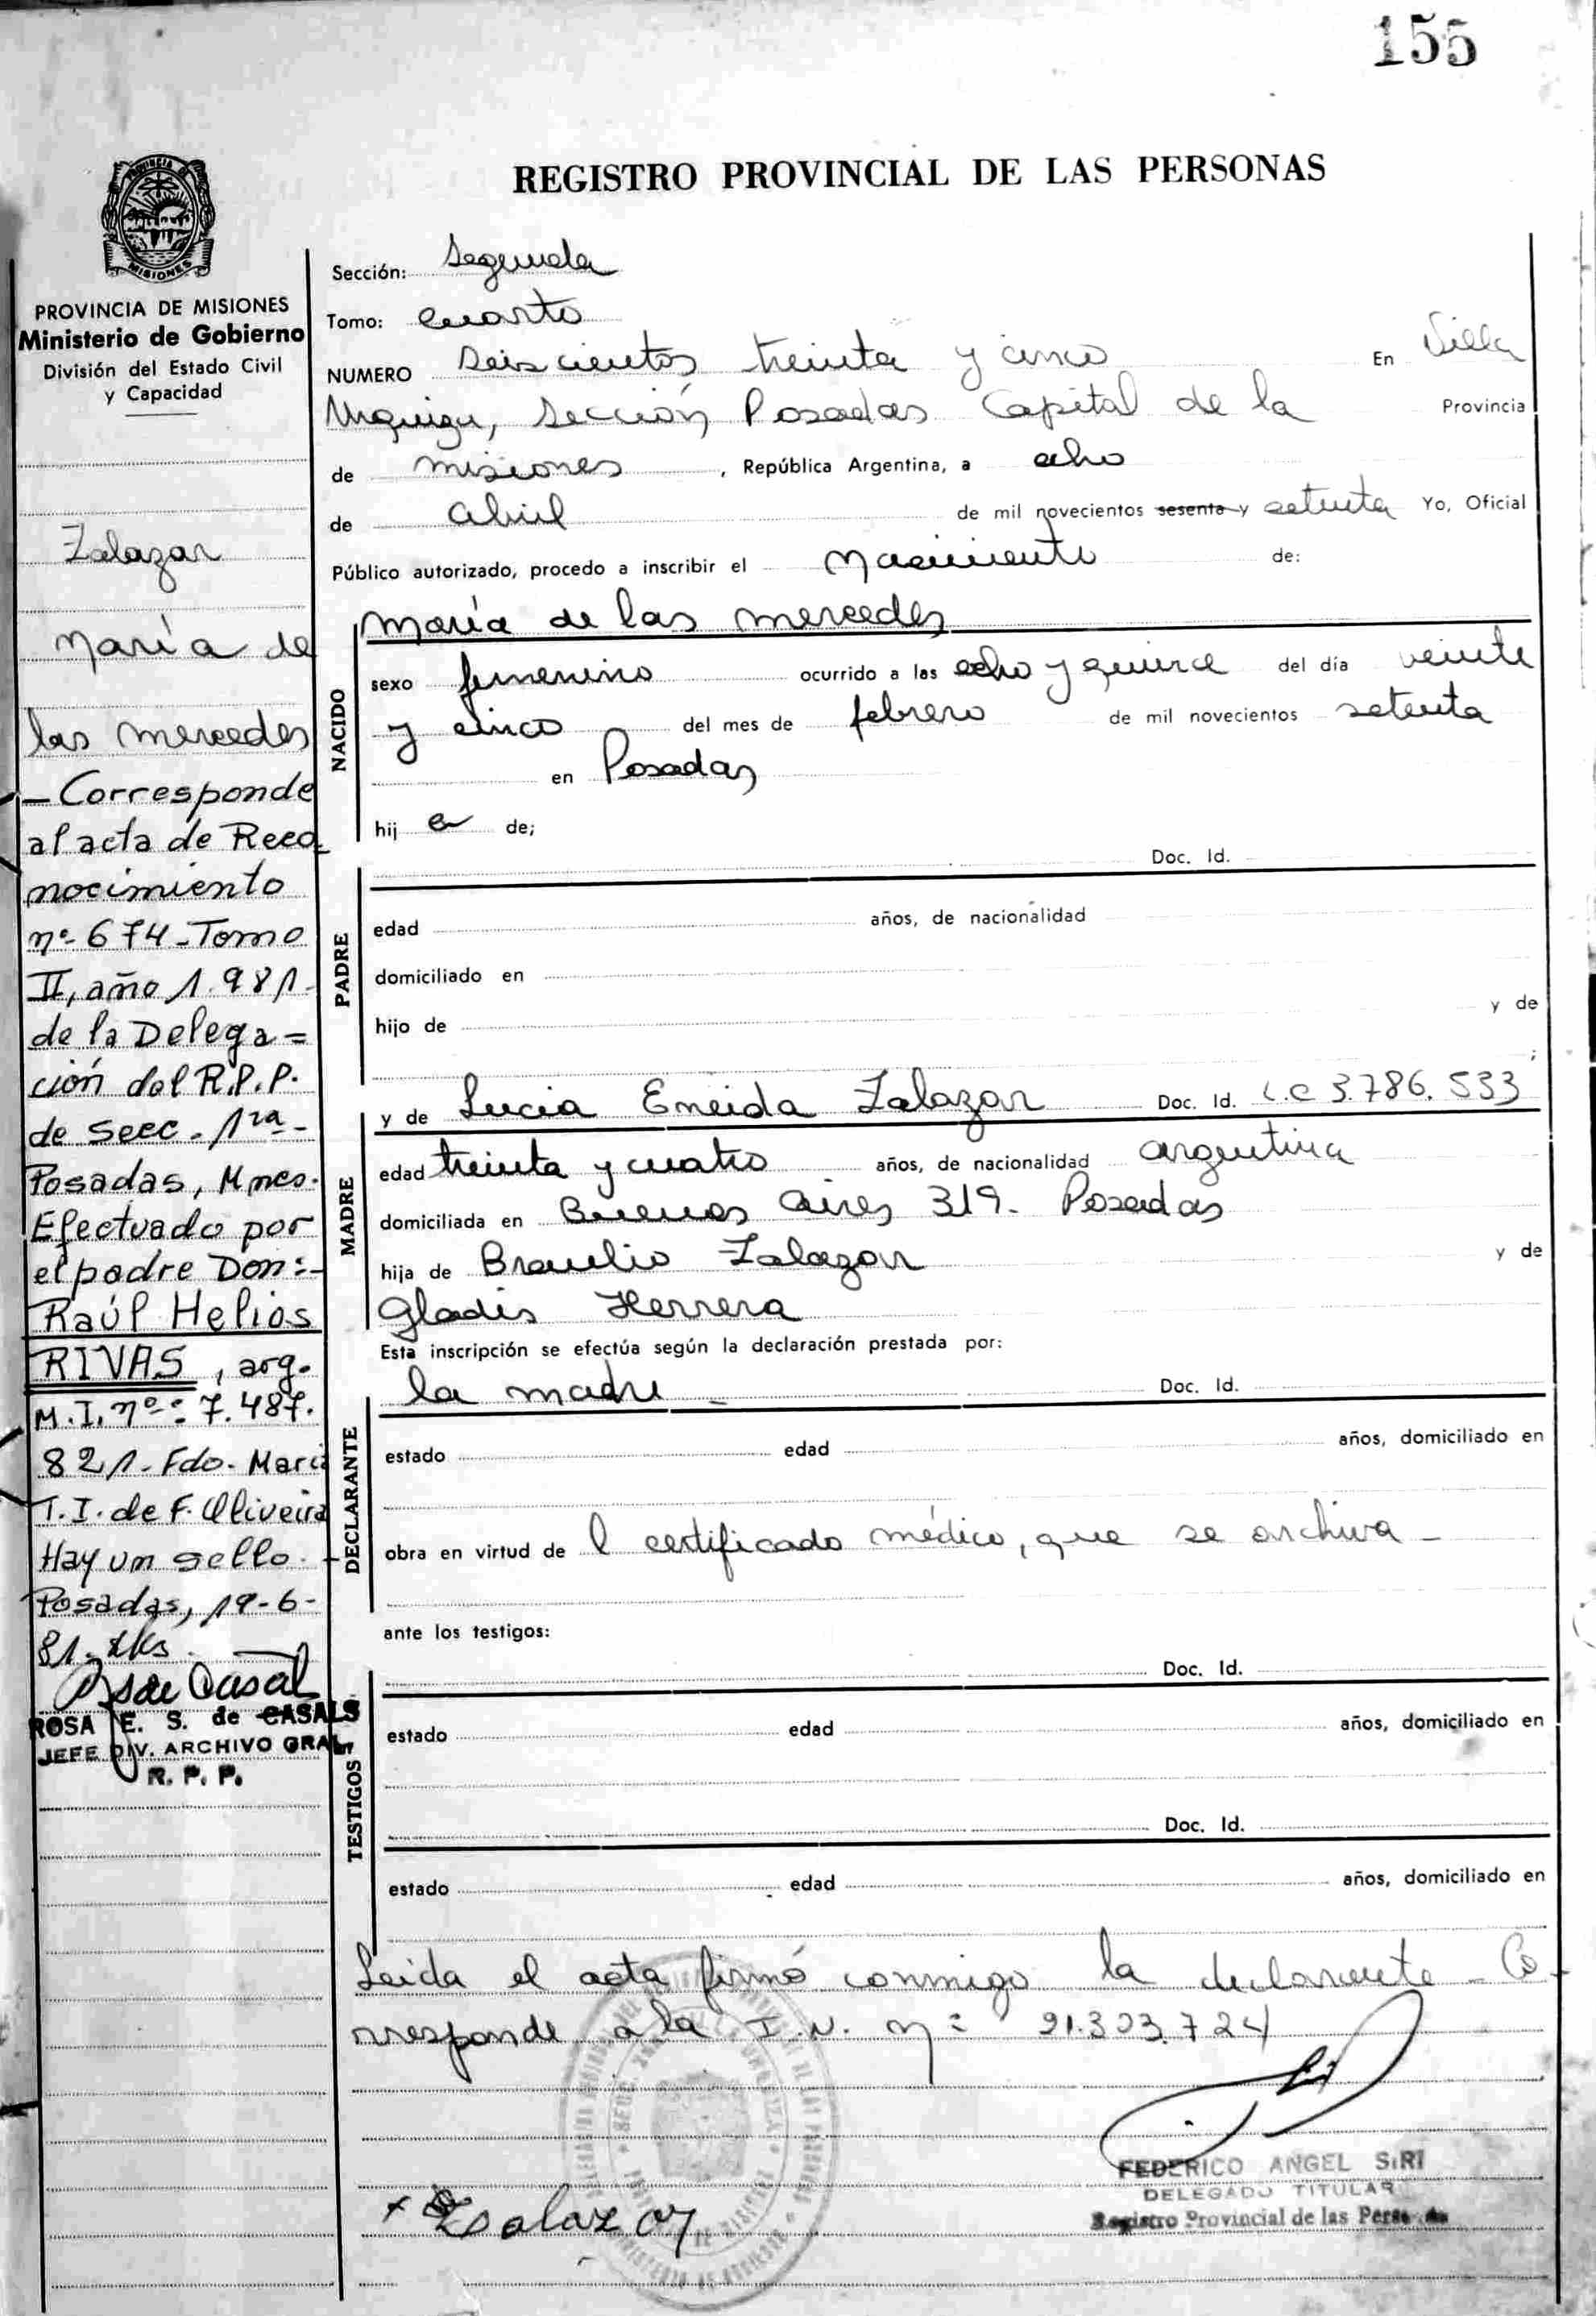 155
REGISTRO PROVINCIAL DE LAS PERSONAS
PROVINCIA DE MISIONES
Ministerio de Gobierno
División del Estado Civil
y Capacidad
Zalazar
María de
las mercedes
- Corresponde
al acta de Reco
nocimiento
nº 674 - Tomo
II, año 1.981.
de la Delega=
ción del R.P.P.
de secc. 1ra -
Posadas, Mnes.
Efectuado por
el padre Don:-
Raúl Helios
RIVAS, arg.
M.I. nº: 7.487.
821 - Fdo. María
T.I. de F. Oliveira
Hay un sello.
Posadas, 19-6-
81.
ROSA E. S. de CASALS
JEFE DIV. ARCHIVO GRAL.
R. P. P.
Sección: Segunda
Tomo: cuarto
NUMERO Seiscientos treinta y cinco En Villa
Urquiza, Sección Posadas Capital de la Provincia
de misiones, República Argentina, a ocho
de abril de mil novecientos sesenta y setenta Yo, Oficial
Público autorizado, procedo a inscribir el Nacimiento de:
NACIDO
maría de las mercedes
sexo femenino ocurrido a las ocho y quince del día veinte
y cinco del mes de febrero de mil novecientos setenta
en Posadas
hij a de;
PADRE
Doc. Id.
edad años, de nacionalidad
domiciliado en
hijo de y de
;
MADRE
y de Lucia Eneida Zalazar Doc. Id. L.C 3.786.533
edad treinta y cuatro años, de nacionalidad argentina
domiciliada en Buenos Aires 319 - Posadas
hija de Braulio Zalazar y de
Gladis Herrera
Esta inscripción se efectúa según la declaración prestada por:
DECLARANTE
la madre - Doc. Id.
estado edad años, domiciliado en
obra en virtud de l certificado médico, que se archiva -
ante los testigos:
TESTIGOS
Doc. Id.
estado edad años, domiciliado en
Doc. Id.
estado edad años, domiciliado en
Leida el acta firmó conmigo la declarante - Co
rresponde a la I.N. nº 21.303.724
FEDERICO ANGEL SIRI
DELEGADO TITULAR
Registro Provincial de las Personas
Zalazar